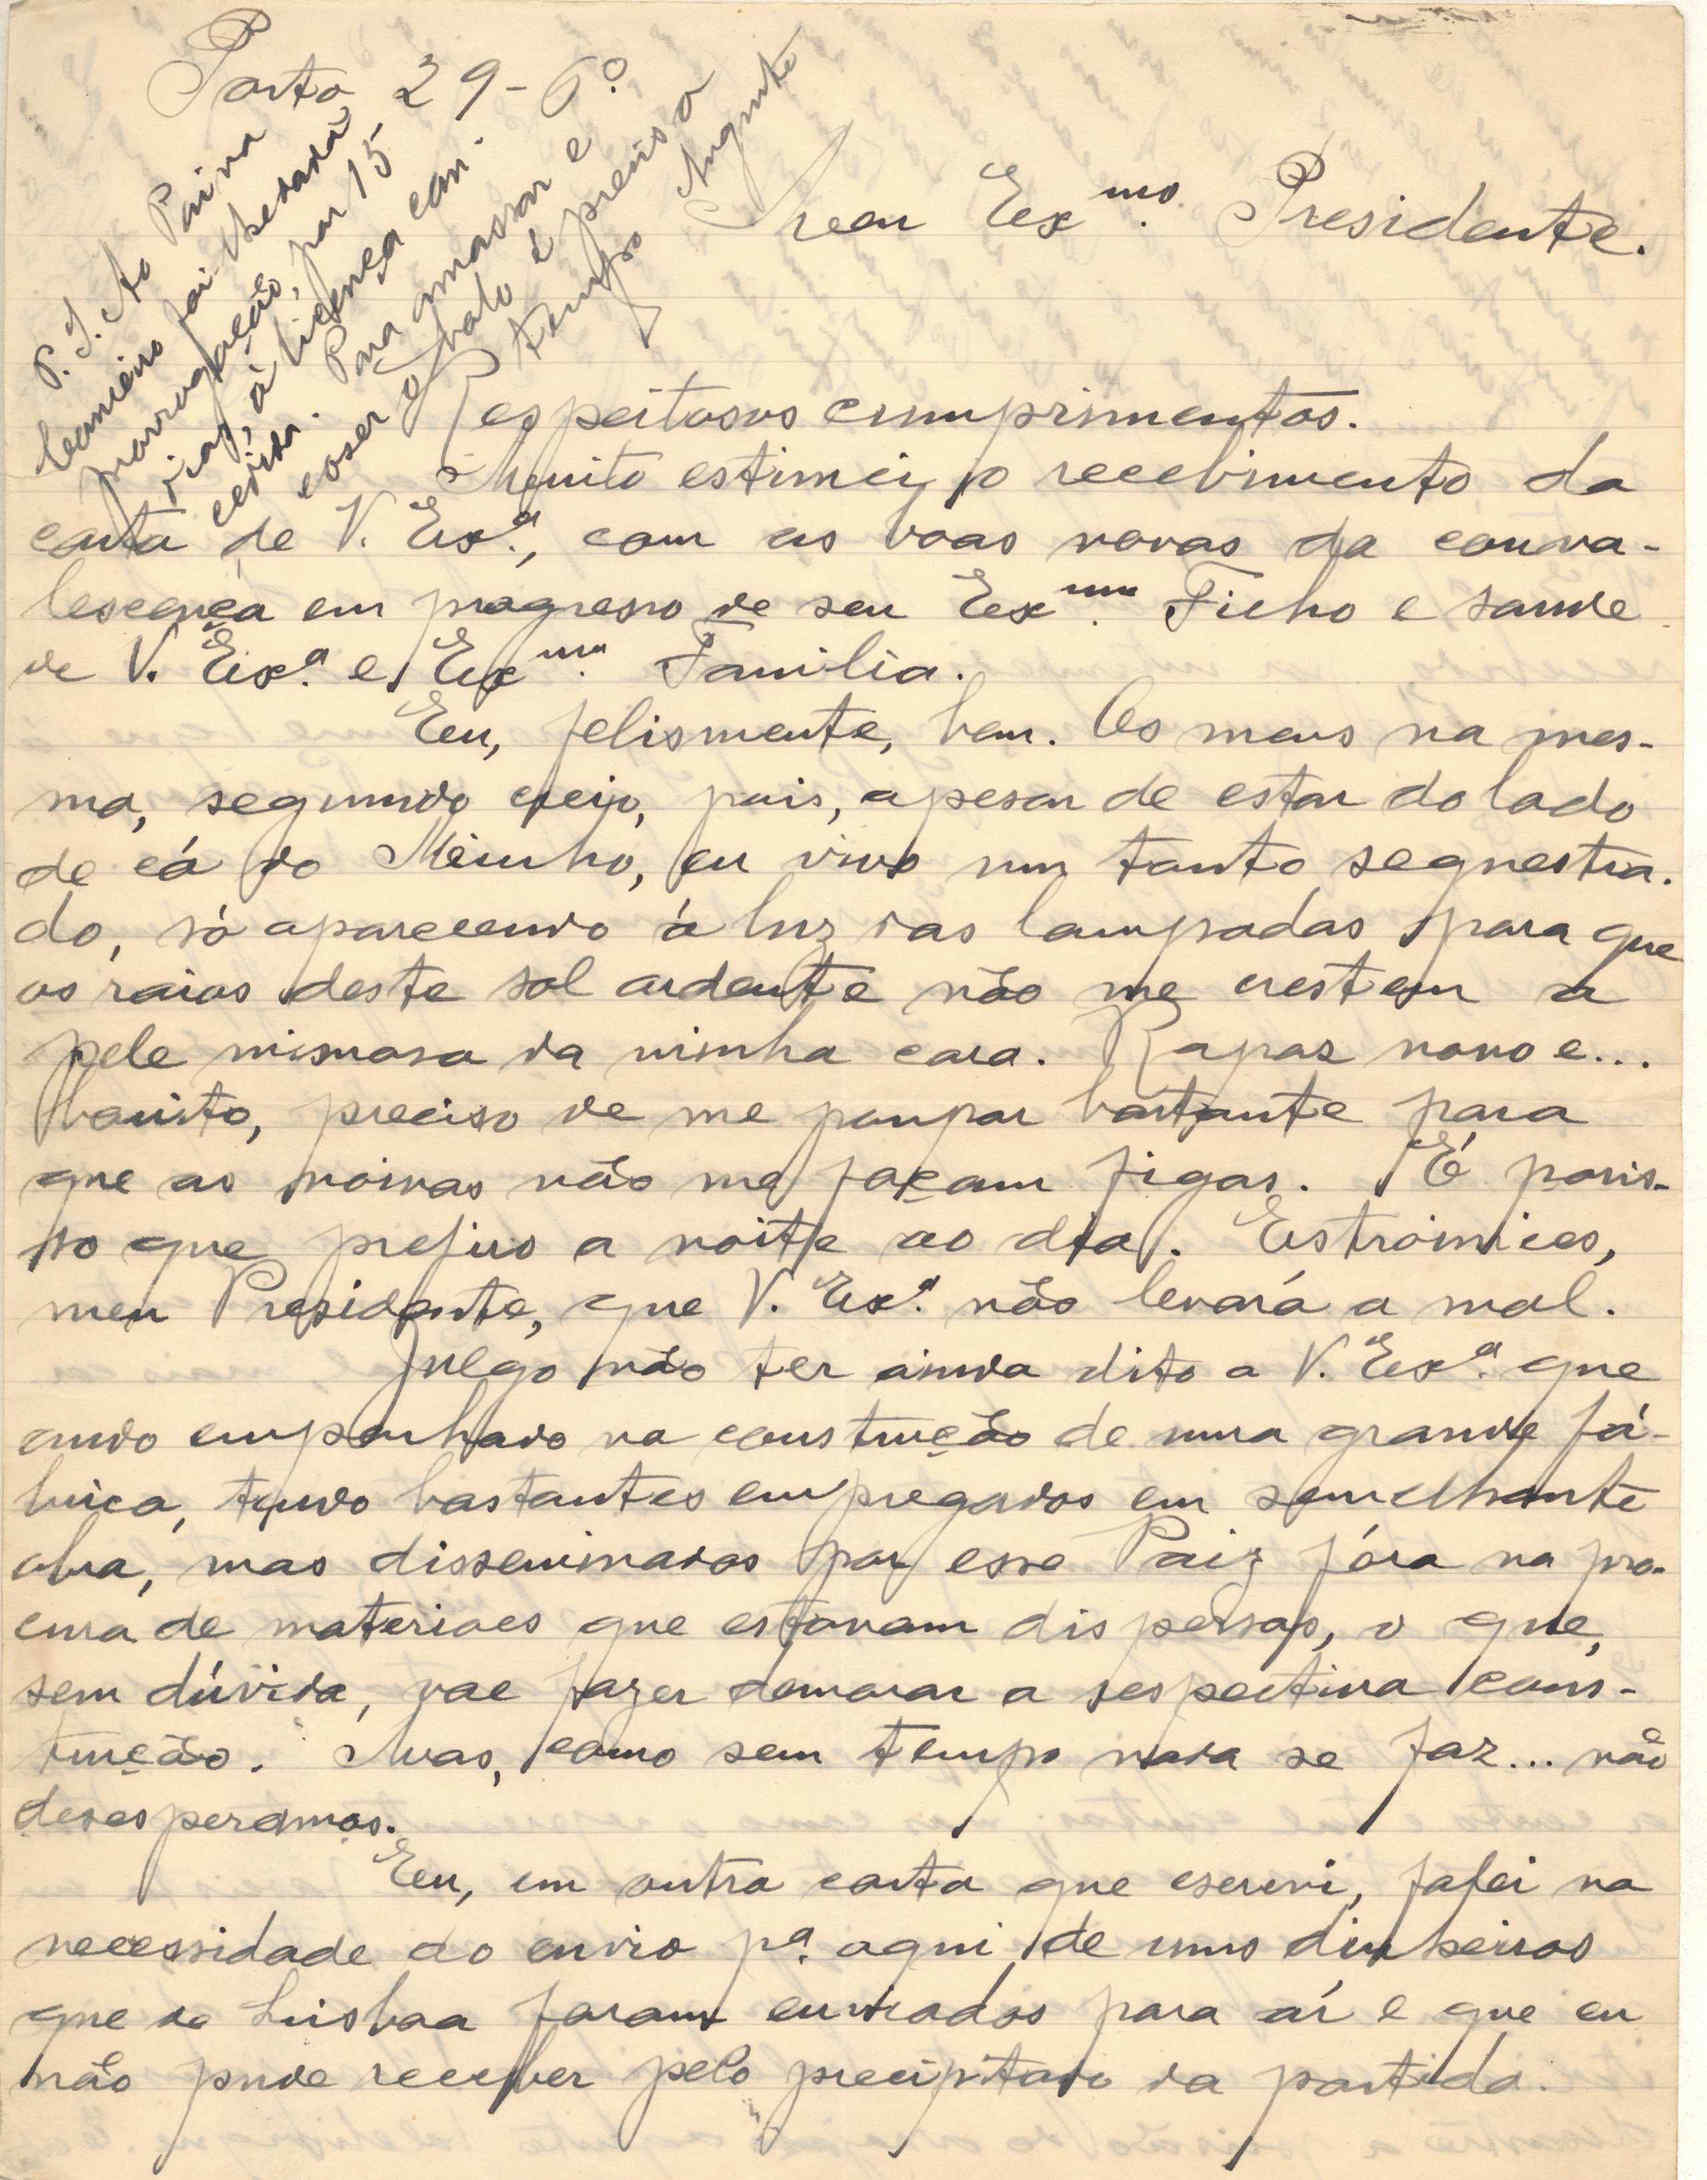 Porto 29-6º
Meu Exmo. Presidente.
P. S. Ao Paiva
Carneiro foi
prorogação, por 15
dias, á licença con-
cedida. Para amassar e
coser o é preciso
tempo
Respeitosos cumprimentos.
Muito estimei o recebimento da
carta de V. Exª., com as boas novas da conva-
lescença em progresso de seu Exmo. Filho e saude
de V. Exª. e Exma. Familia.
Eu, felismente, bem. Os meus na mes-
ma, segundo creio, pois, apesar de estar do lado
de cá do Minho, eu vivo um tanto sequestra-
do, só aparecendo á luz das lampadas para que
os raios deste sol ardente não me crestem a
pele mimosa da minha cara. Rapaz novo e...
bonito, preciso de me poupar bastante para
que as noivas não me façam figas. É poris-
so que prefiro a noite ao dia. Estroinices,
meu Presidente, que V. Exª. não levará a mal.
Julgo não ter ainda dito a V. Exª. que
ando empenhado na construção de uma grande fá-
brica, tendo bastantes empregados em semelhante
obra, mas disseminados por esse Paiz fóra na pro-
cura de materiaes que estavam dispersos, o que,
sem dúvida, vae fazer demorar a respectiva cons-
trução. Mas, como sem tempo nada se faz... não
desesperamos.
Eu, em outra carta que escrevi, falei na
necessidade do envio pª. aqui de uns dinheiros
que de Lisboa foram enviados para aí e que eu
não pude receber pelo precipitado da partida.